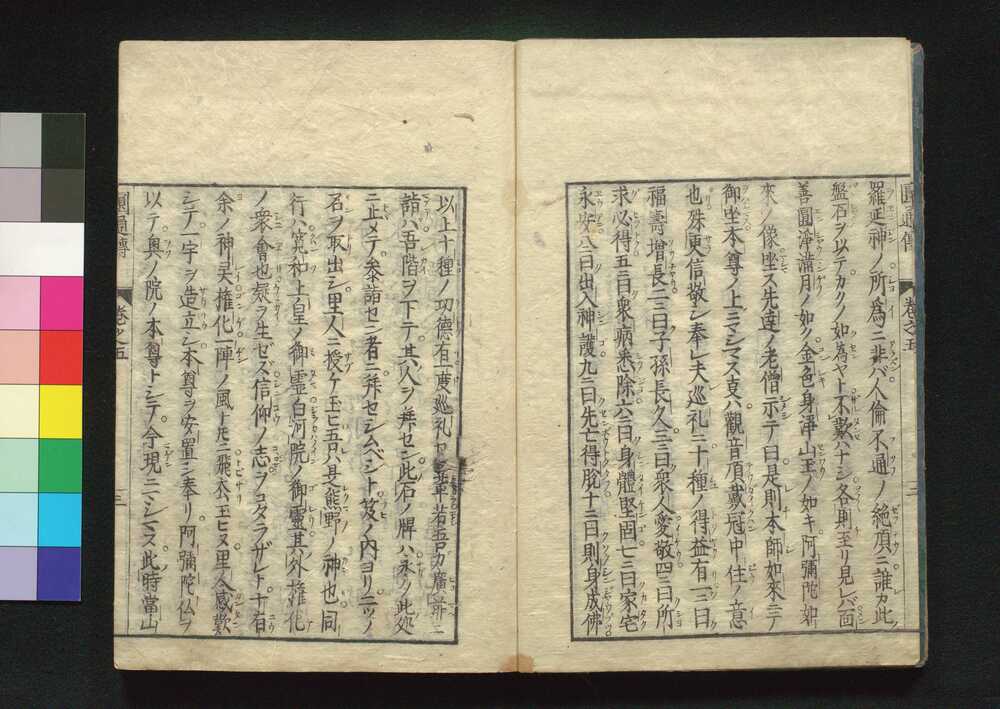 圓通傳 卷之五
羅延神ノ所爲ニ非バ人倫不通ノ絶頂ニ誰カ此
盤石ヲ以テカクノ如爲ヤト不歎ハナシ各則至リ見レバ面
善圓淨滿月ノ如ク金色身淨山王ノ如キ阿彌陀如
來ノ像坐ス先達ノ老僧示テ曰是則本師如來ニテ
御坐本尊ノ上ニマシマス夏ハ觀音頂戴冠中住ノ意
也殊更信敬シ奉レ夫巡礼ニ十種ノ得益有一ニ曰
福壽増長二ニ曰子孫長久三ニ曰衆人愛敬四ニ曰所
求必得五ニ曰衆病悉除六ニ曰身體堅固七ニ曰家宅
永安八ニ曰出入神護九ニ曰先亡得脫十ニ曰則身成佛
以上十種ノ功德有一度巡礼セシ輩若吾力廣前ニ
詣ハ吾階ヲ下テ其人ヲ拜セン此石ノ牌ハ永ク此処
ニ止メテ參詣セン者ニ拜セシムベシト笈ノ内ヨリ二ツノ
石ヲ取出シ里人ニ授ケ玉ヒ吾ハ是熊野ノ神也同
行ハ寬和上皇ノ御靈白河院ノ御靈其外權化
ノ衆會也疑ヲ生ゼズ信仰ノ志ヲコタラザレト十有
余ノ神㚑權化一陣ノ風ト共ニ飛去玉ヒヌ里人感歎
シテ一宇ヲ造立シ本尊ヲ安置シ奉リ阿彌陀仏ヲ
以テ奧ノ院ノ本尊トシテ今現ニマシマス此時當山
圓通傳 卷之五 三